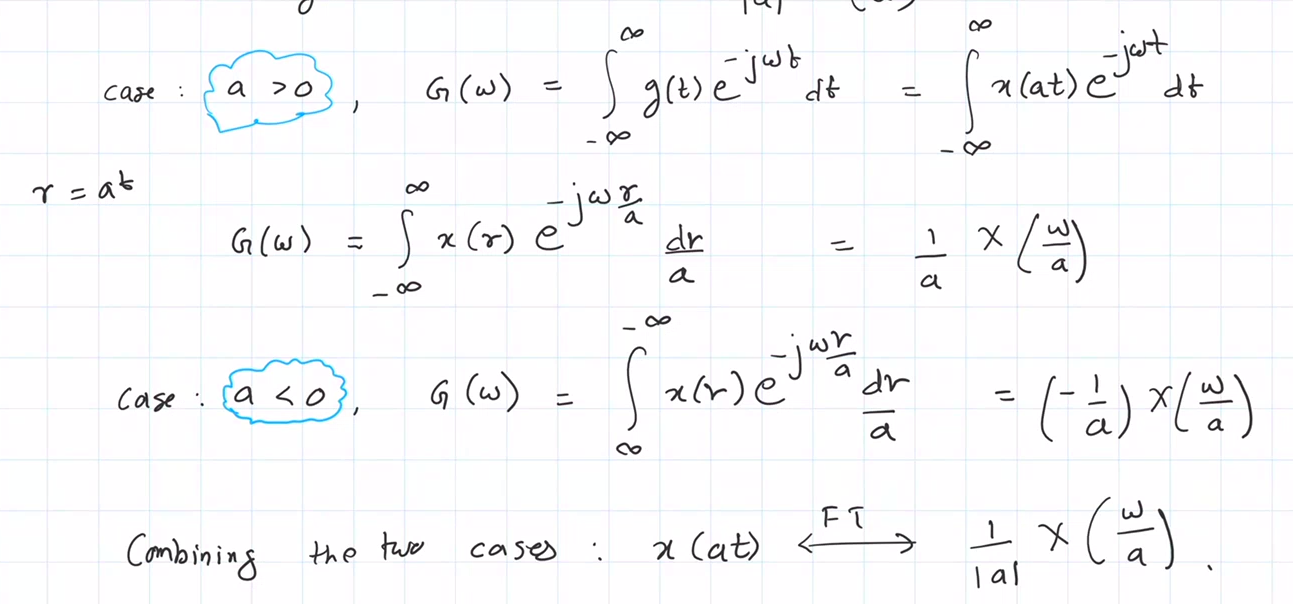 case : a > 0 , G(ω) = ∫_{-∞}^{∞} g(t) e^{-jωt} dt = ∫_{-∞}^{∞} x(at) e^{-jωt} dt
r = at
G(ω) = ∫_{-∞}^{∞} x(r) e^{-jω r/a} dr/a = 1/a X(ω/a)
case : a < 0 , G(ω) = ∫_{∞}^{-∞} x(r) e^{-jω r/a} dr/a = (-1/a) X(ω/a)
Combining the two cases : x(at) <-FT-> 1/|a| X(ω/a) .